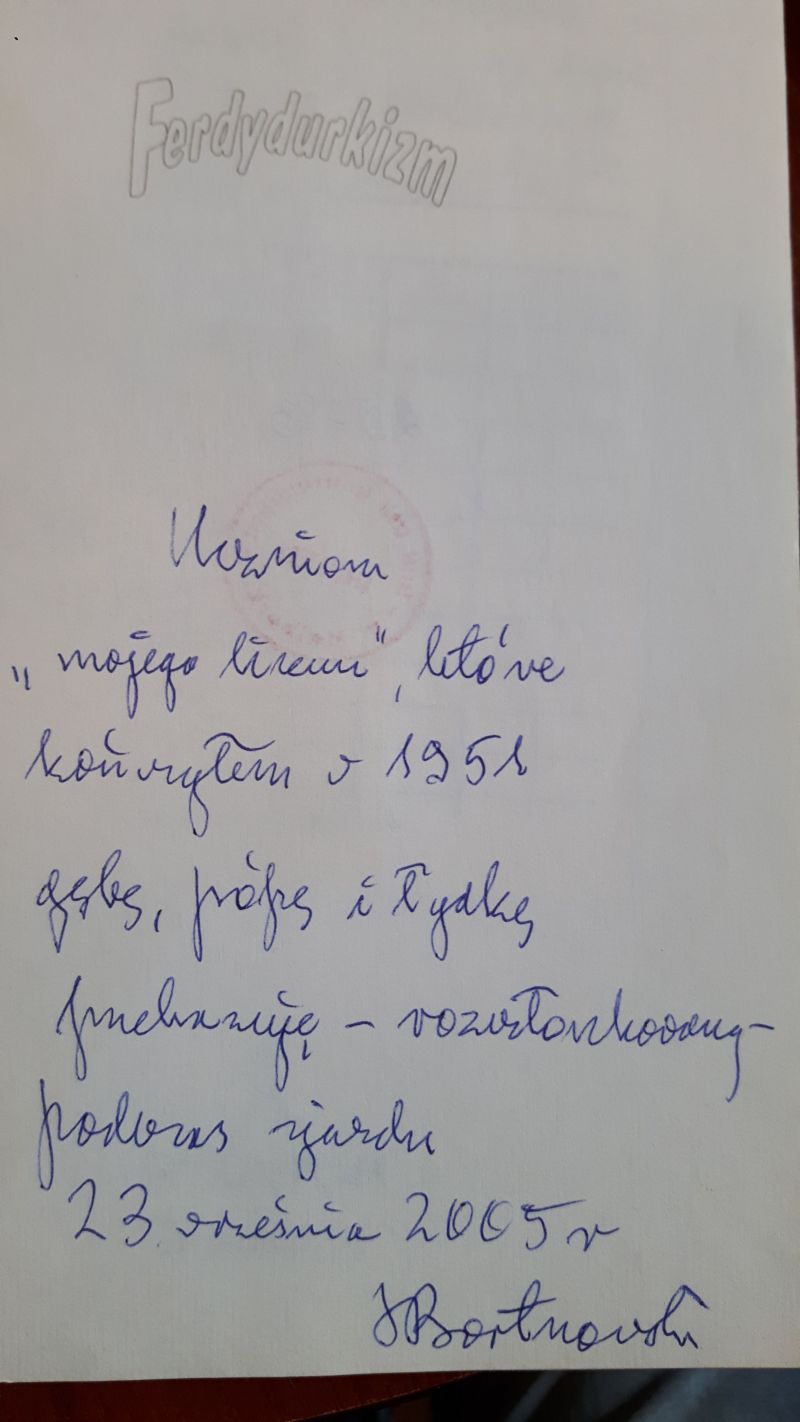 Ferdydurkizm
Uczniom
„mojego liceum", które
kończyłem w 1951
gębę, pupę i łydkę
przekazuję – rozczłonkowany –
podczas zjazdu
23 września 2005 r
SBortnowski